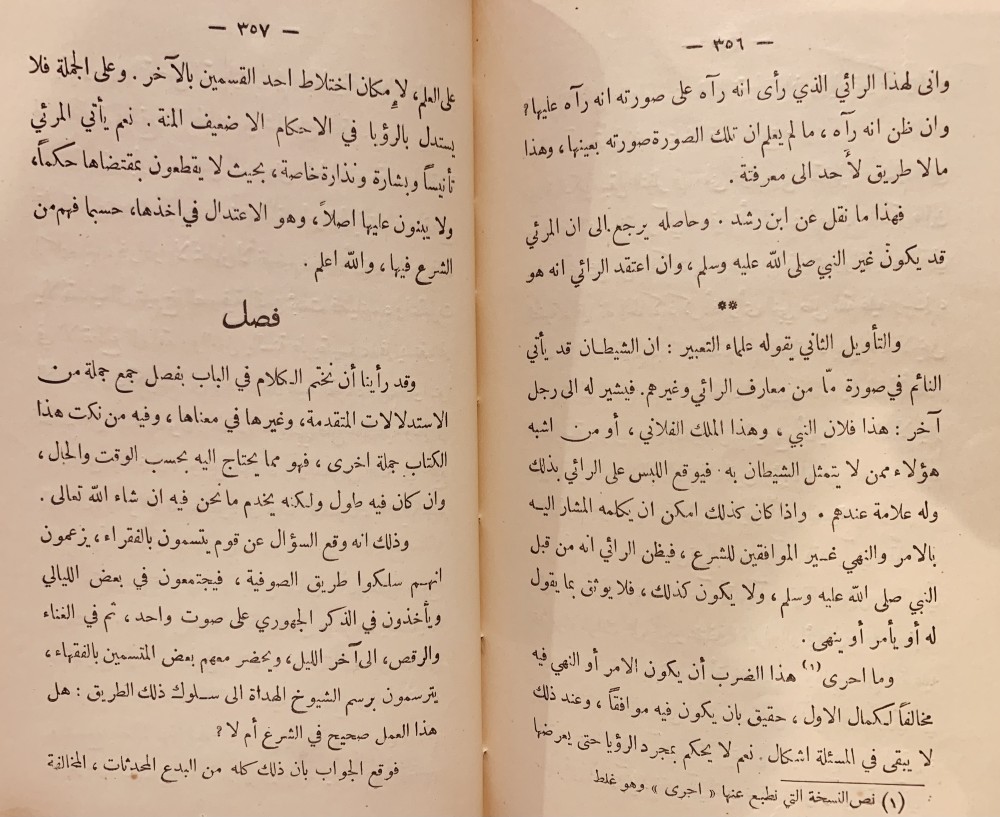 — ٣٥٦ —
وانى لهذا الرائي الذي رأى انه رآه على صورته انه رآه عليها؟
وان ظن انه رآه ، ما لم يعلم ان تلك الصورة صورته بعينها، وهذا
ما لا طريق لأحد الى معرفتة .
فهذا ما نقل عن ابن رشد . وحاصله يرجع الى ان المرئي
قد يكون غير النبي صلى الله عليه وسلم، وان اعتقد الرائي انه هو
**
والتأويل الثاني يقوله علماء التعبير : ان الشيطان قد يأتي
النائم في صورة مّا من معارف الرائي وغيرهم. فيشير له الى رجل
آخر : هذا فلان النبي ، وهذا الملك الفلاني ، أو من اشبه
هؤلاء ممن لا يتمثل الشيطان به . فيوقع اللبس على الرائي بذلك
وله علامة عندهم . واذا كان كذلك امكن ان يكلمه المشار اليه
بالامر والنهي غير الموافقين للشرع ، فيظن الرائي انه من قبل
النبي صلى الله عليه وسلم، ولا يكون كذلك ، فلا يوثق بما يقول
له أو يأمر أو ينهى .
وما احرى (١) هذا الضرب أن يكون الامر أو النهي فيه
مخالفاً لكمال الاول ، حقيق بان يكون فيه موافقاً ، وعند ذلك
لا يبقى في المسئلة اشكال . نعم لا يحكم بمجرد الرؤيا حتى يعرضها
(١) نص النسخة التي نطبع عنها « اجرى » وهو غلط
— ٣٥٧ —
على العلم، لإمكان اختلاط احد القسمين بالآخر . وعلى الجملة فلا
يستدل بالرؤيا في الاحكام الا ضعيف المنة . نعم يأتي المرئي
تأنيساً وبشارة ونذارة خاصة ، بحيث لا يقطعون بمقتضاها حكماً،
ولا يبنون عليها اصلاً ، وهو الاعتدال في اخذها، حسبما فهم من
الشرع فيها ، والله اعلم .
فصل
وقد رأينا أن نختم الكلام في الباب بفصل جمع جملة من
الاستدلالات المتقدمة، وغيرها في معناها ، وفيه من نكت هذا
الكتاب جملة اخرى ، فهو مما يحتاج اليه بحسب الوقت والحال ،
وان كان فيه طول ولكنه يخدم ما نحن فيه ان شاء الله تعالى .
وذلك انه وقع السؤال عن قوم يتسمون بالفقراء ، يزعمون
انهم سلكوا طريق الصوفية ، فيجتمعون في بعض الليالي
ويأخذون في الذكر الجهوري على صوت واحد ، ثم في الغناء
والرقص، الى آخر الليل، ويحضر معهم بعض المتسمين بالفقهاء ،
يترسمون برسم الشيوخ الهداة الى سلوك ذلك الطريق : هل
هذا العمل صحيح في الشرع أم لا ؟
فوقع الجواب بان ذلك كله من البدع المحدثات ، المخالفة